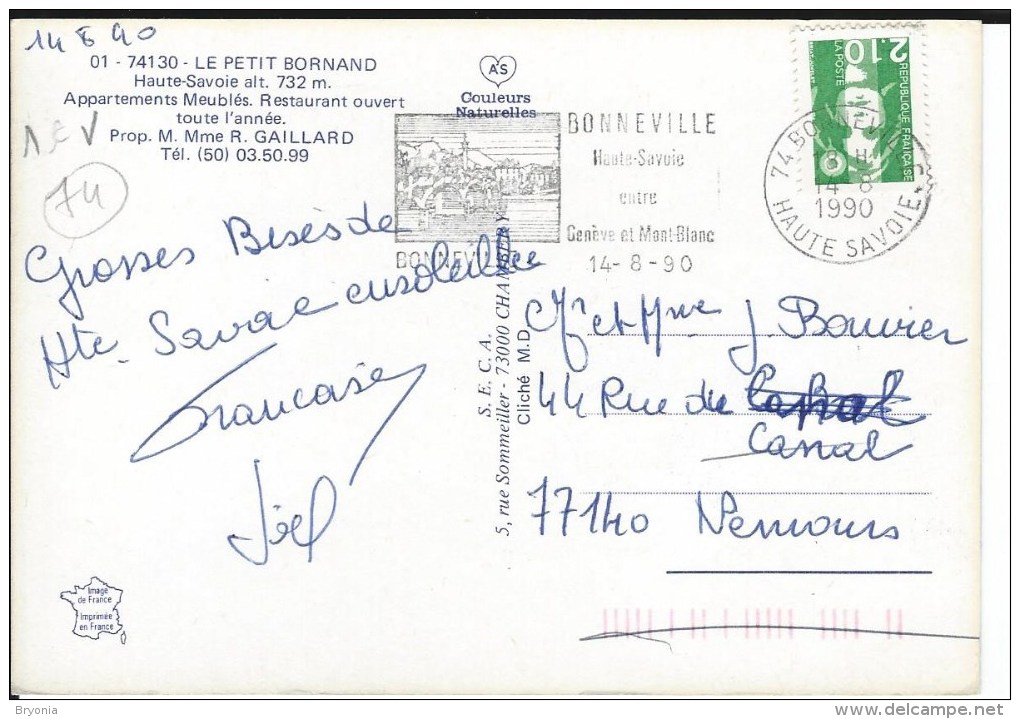 14 8 90
01 - 74130 - LE PETIT BORNAND
Haute-Savoie alt. 732 m.
Appartements Meublés. Restaurant ouvert
toute l'année.
Prop. M. Mme R. GAILLARD
Tél. (50) 03.50.99
74
AS
Couleurs
Naturelles
BONNEVILLE
BONNEVILLE
Haute-Savoie
entre
Genève et Mont-Blanc
14-8-90
2.10
REPUBLIQUE FRANÇAISE
LA POSTE
74 BONNEVILLE
18 H
14-8
1990
HAUTE SAVOIE
Grosses Bises de
Hte. Savoie ensoleillée
Francoise
Joël
S. E. C. A.
5, rue Sommeiller - 73000 CHAMBERY
Cliché M.D.
Mr et Mme J Bouvier
44 Rue du
Canal
77140 Nemours
Image
de France
Imprimée
en France
Bryonia
www.delcampe.net